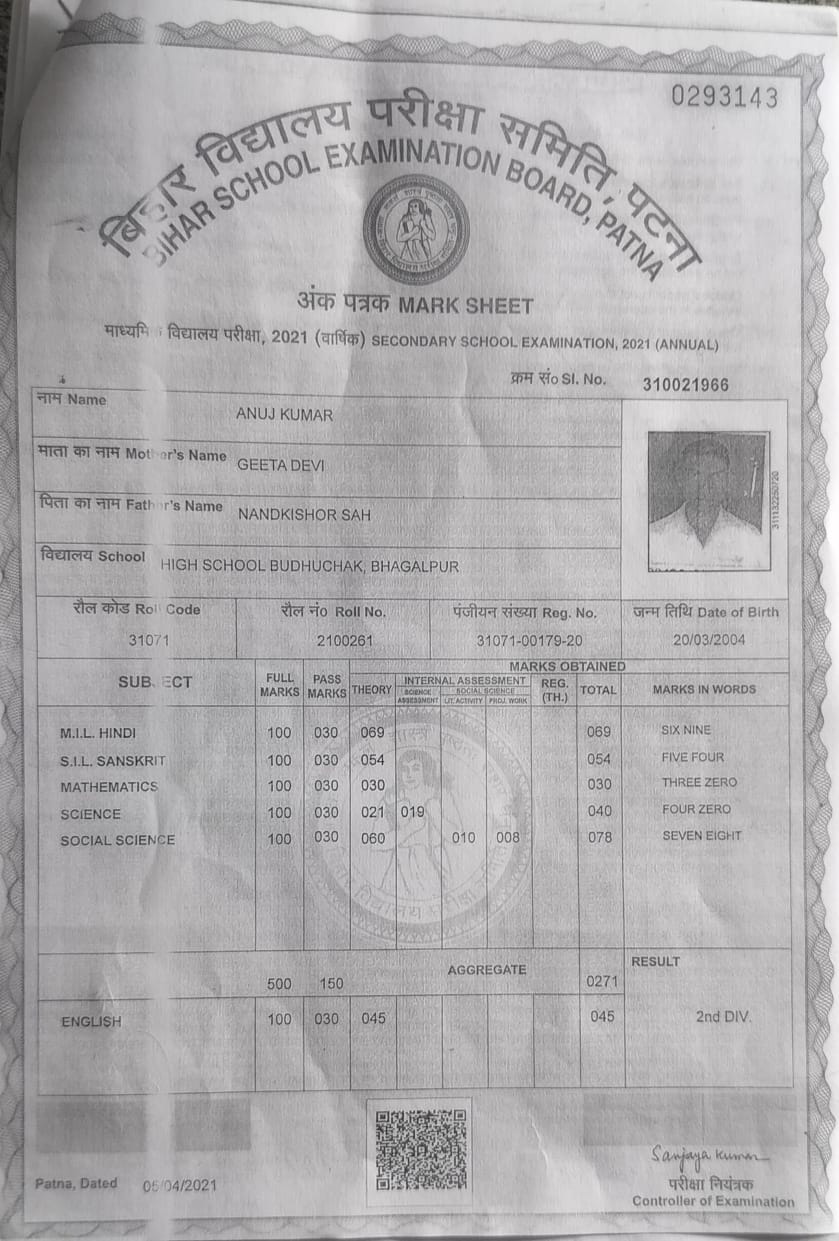 0293143
बिहार विद्यालय परीक्षा समिति, पटना
BIHAR SCHOOL EXAMINATION BOARD, PATNA
अंक पत्रक MARK SHEET
माध्यमि विद्यालय परीक्षा, 2021 (वार्षिक) SECONDARY SCHOOL EXAMINATION, 2021 (ANNUAL)
क्रम सं० Sl. No. 310021966
नाम Name ANUJ KUMAR
माता का नाम Mother's Name GEETA DEVI
पिता का नाम Father's Name NANDKISHOR SAH
विद्यालय School HIGH SCHOOL BUDHUCHAK, BHAGALPUR
311132250720
रौल कोड Roll Code रौल नं० Roll No. पंजीयन संख्या Reg. No. जन्म तिथि Date of Birth
31071 2100261 31071-00179-20 20/03/2004
SUBJECT FULL MARKS PASS MARKS MARKS OBTAINED
THEORY INTERNAL ASSESSMENT REG. (TH.) TOTAL MARKS IN WORDS
SCIENCE SOCIAL SCIENCE
ASSESSMENT LIT. ACTIVITY PROJ. WORK
M.I.L. HINDI 100 030 069 069 SIX NINE
S.I.L. SANSKRIT 100 030 054 054 FIVE FOUR
MATHEMATICS 100 030 030 030 THREE ZERO
SCIENCE 100 030 021 019 040 FOUR ZERO
SOCIAL SCIENCE 100 030 060 010 008 078 SEVEN EIGHT
500 150 AGGREGATE 0271 RESULT
ENGLISH 100 030 045 045 2nd DIV.
Sanjaya Kumar
Patna, Dated 05/04/2021
परीक्षा नियंत्रक
Controller of Examination